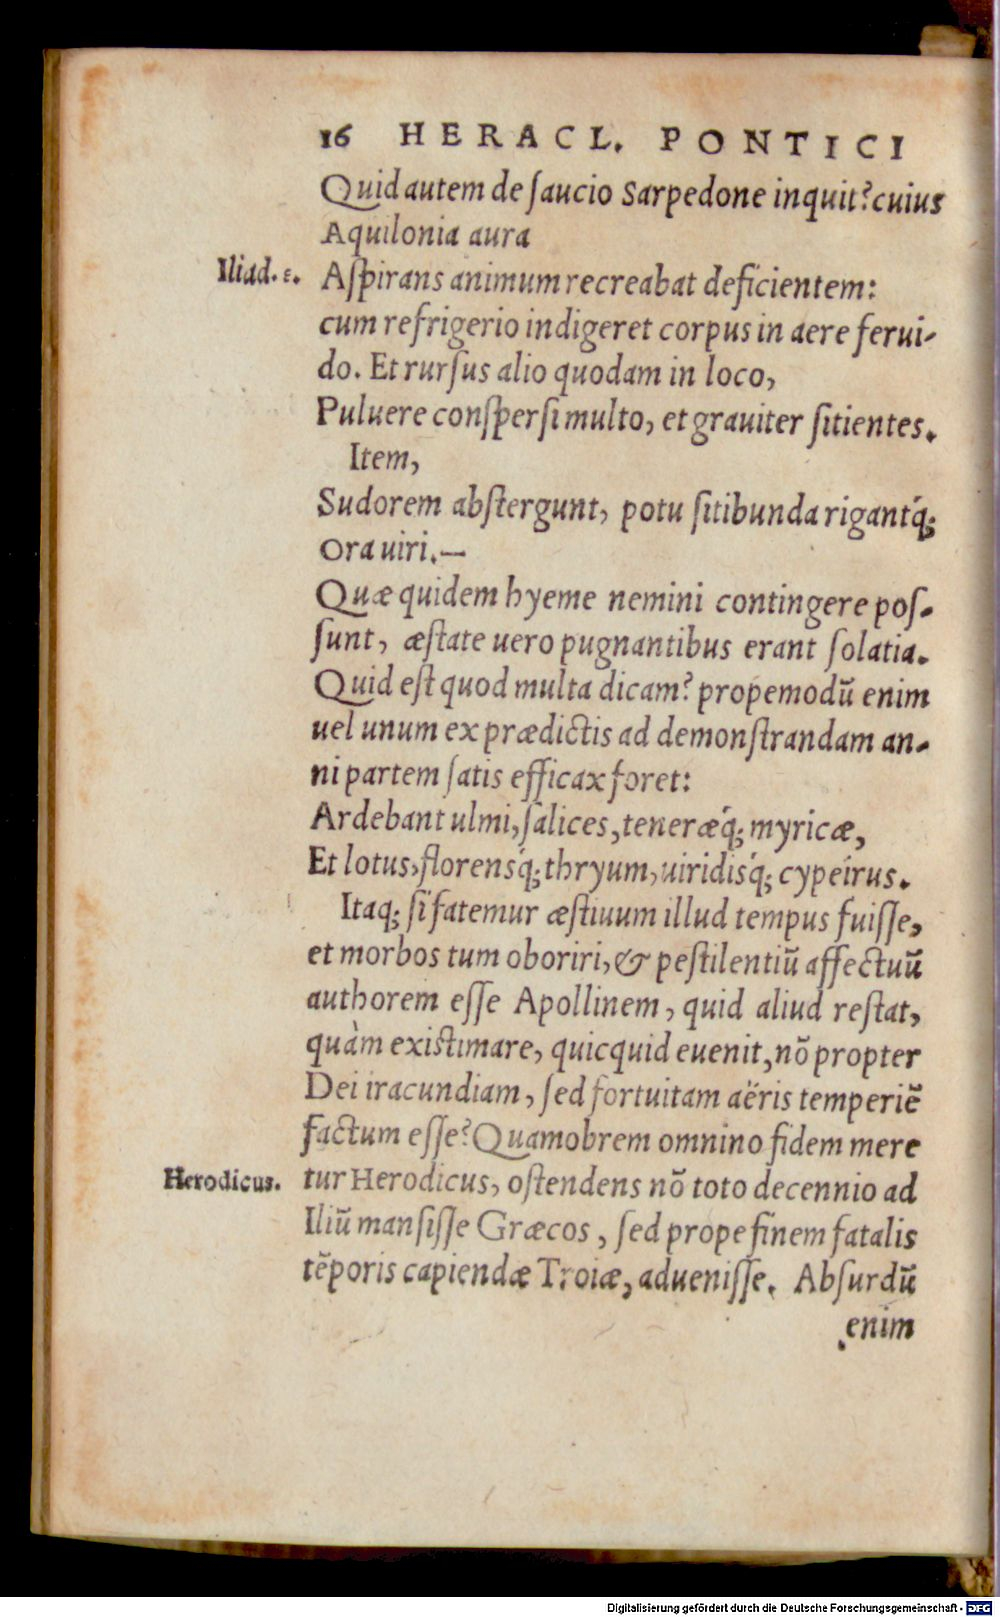 16 HERACL. PONTICI
Quid autem de ſaucio Sarpedone inquit? cuius
Aquilonia aura
Iliad. ε. Aſpirans animum recreabat deficientem:
cum refrigerio indigeret corpus in aere ferui-
do. Et rurſus alio quodam in loco,
Puluere conſperſi multo, et grauiter ſitientes.
Item,
Sudorem abſtergunt, potu ſitibunda rigantq́;
Ora uiri.—
Quæ quidem hyeme nemini contingere poſ-
ſunt, æſtate uero pugnantibus erant ſolatia.
Quid eſt quod multa dicam? propemodū enim
uel unum ex prædictis ad demonſtrandam an-
ni partem ſatis efficax foret:
Ardebant ulmi, ſalices, teneræq́; myricæ,
Et lotus, florensq́; thryum, uiridisq́; cypeirus.
Itaq; ſi fatemur æſtiuum illud tempus fuiſſe,
et morbos tum oboriri, & peſtilentiū affectuū
authorem eſſe Apollinem, quid aliud reſtat,
quàm exiſtimare, quicquid euenit, nō propter
Dei iracundiam, ſed fortuitam aëris temperiē
factum eſſe? Quamobrem omnino fidem mere
Herodicus. tur Herodicus, oſtendens nō toto decennio ad
Iliū manſiſſe Græcos, ſed prope finem fatalis
tēporis capiendæ Troiæ, adueniſſe. Abſurdū
enim
Digitalisierung gefördert durch die Deutsche Forschungsgemeinschaft - DFG